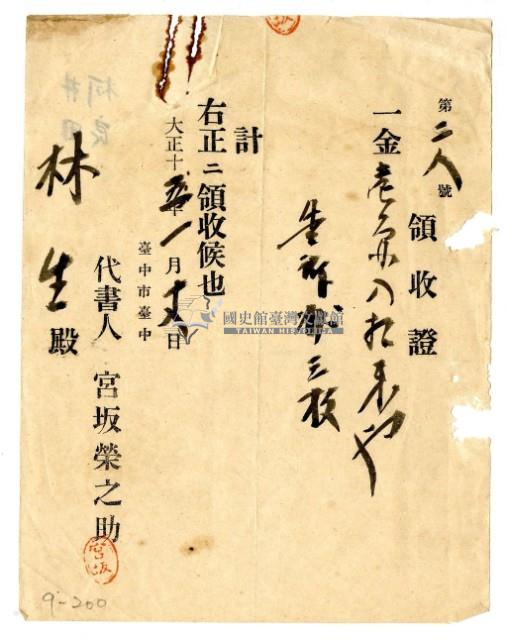 第二八號
領收證
一金壱円八拾来也
告訴状三枚
計
右正ニ領收候也
大正十五年一月十八日
臺中市臺中
代書人 宮坂榮之助
宮坂
林生殿
國史館臺灣文獻館
TAIWAN HISTORICA
9-200